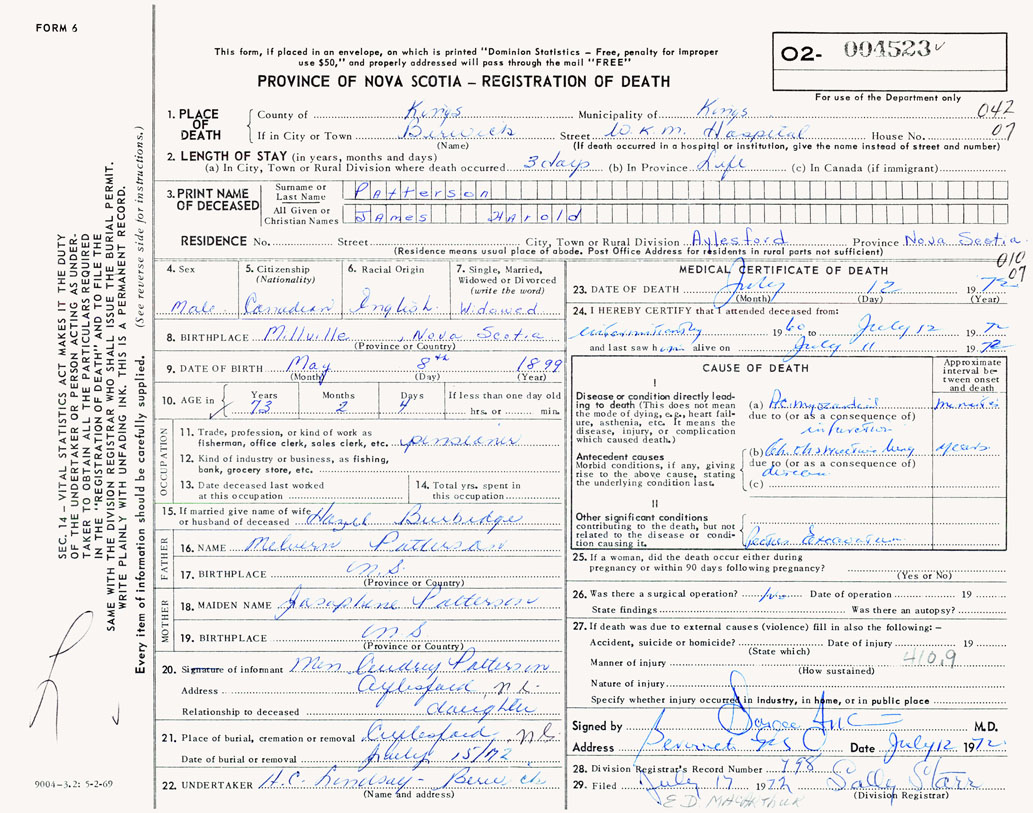 FORM 6
This form, if placed in an envelope, on which is printed "Dominion Statistics – Free, penalty for improper
use $50," and properly addressed will pass through the mail "FREE"
PROVINCE OF NOVA SCOTIA – REGISTRATION OF DEATH
02- 004523
For use of the Department only
042
07
1. PLACE OF DEATH
County of Kings Municipality of Kings
If in City or Town Berwick Street W.K.M. Hospital House No.
(Name) (If death occurred in a hospital or institution, give the name instead of street and number)
2. LENGTH OF STAY (in years, months and days)
(a) In City, Town or Rural Division where death occurred 3 days (b) In Province Life (c) In Canada (if immigrant)
3. PRINT NAME OF DECEASED
Surname or Last Name Patterson
All Given or Christian Names James Harold
RESIDENCE No. Street City, Town or Rural Division Aylesford Province Nova Scotia
(Residence means usual place of abode. Post Office Address for residents in rural parts not sufficient)
010
07
4. Sex
Male
5. Citizenship
(Nationality)
Canadian
6. Racial Origin
English
7. Single, Married,
Widowed or Divorced
(write the word)
Widowed
8. BIRTHPLACE Millville, Nova Scotia
(Province or Country)
9. DATE OF BIRTH May 8th 1899
(Month) (Day) (Year)
10. AGE in
Years Months Days If less than one day old
73 2 4 hrs. or min.
OCCUPATION
11. Trade, profession, or kind of work as
fisherman, office clerk, sales clerk, etc. pensioner
12. Kind of industry or business, as fishing,
bank, grocery store, etc.
13. Date deceased last worked
at this occupation
14. Total yrs. spent in
this occupation
15. If married give name of wife
or husband of deceased Hazel Burbidge
FATHER
16. NAME Melvern Patterson
17. BIRTHPLACE N.S.
(Province or Country)
MOTHER
18. MAIDEN NAME Josephine Patterson
19. BIRTHPLACE N S
(Province or Country)
20. Signature of informant Miss Audrey Patterson
Address Aylesford, N.S.
Relationship to deceased daughter
21. Place of burial, cremation or removal Aylesford, N.S.
Date of burial or removal July 15/72
22. UNDERTAKER H.C. Lindsay - Berwick
(Name and address)
MEDICAL CERTIFICATE OF DEATH
23. DATE OF DEATH July 12 1972
(Month) (Day) (Year)
24. I HEREBY CERTIFY that I attended deceased from:
intermittently 1960 to July 12 1972
and last saw him alive on July 11 1972
CAUSE OF DEATH
Approximate
interval be-
tween onset
and death
I
Disease or condition directly lead-
ing to death (This does not mean
the mode of dying, e.g., heart fail-
ure, asthenia, etc. It means the
disease, injury, or complication
which caused death.)
(a) Ac. myocardial minutes
due to (or as a consequence of)
infarction
Antecedent causes
Morbid conditions, if any, giving
rise to the above cause, stating
the underlying condition last.
(b) Ch. Obstructive lung years
due to (or as a consequence of)
disease
(c)
II
Other significant conditions
contributing to the death, but not
related to the disease or condi-
tion causing it.
Pectus Excavatum
25. If a woman, did the death occur either during
pregnancy or within 90 days following pregnancy?
(Yes or No)
26. Was there a surgical operation? no Date of operation 19
State findings Was there an autopsy?
27. If death was due to external causes (violence) fill in also the following: –
Accident, suicide or homicide? Date of injury 19
(State which)
Manner of injury 410.9
(How sustained)
Nature of injury
Specify whether injury occurred in industry, in home, or in public place
Signed by M.D.
Address Berwick NS Date July 12 1972
28. Division Registrar's Record Number 798
29. Filed July 17 1972 Sally Starr
(Division Registrar)
E D MacArthur
SEC. 14 – VITAL STATISTICS ACT MAKES IT THE DUTY
OF THE UNDERTAKER OR PERSON ACTING AS UNDER-
TAKER TO OBTAIN ALL THE PARTICULARS REQUIRED
IN THE "REGISTRATION OF DEATH" AND TO FILE THE
SAME WITH THE DIVISION REGISTRAR WHO SHALL ISSUE THE BURIAL PERMIT.
WRITE PLAINLY WITH UNFADING INK. THIS IS A PERMANENT RECORD.
Every item of information should be carefully supplied. (See reverse side for instructions.)
9004-3.2: 5-2-69